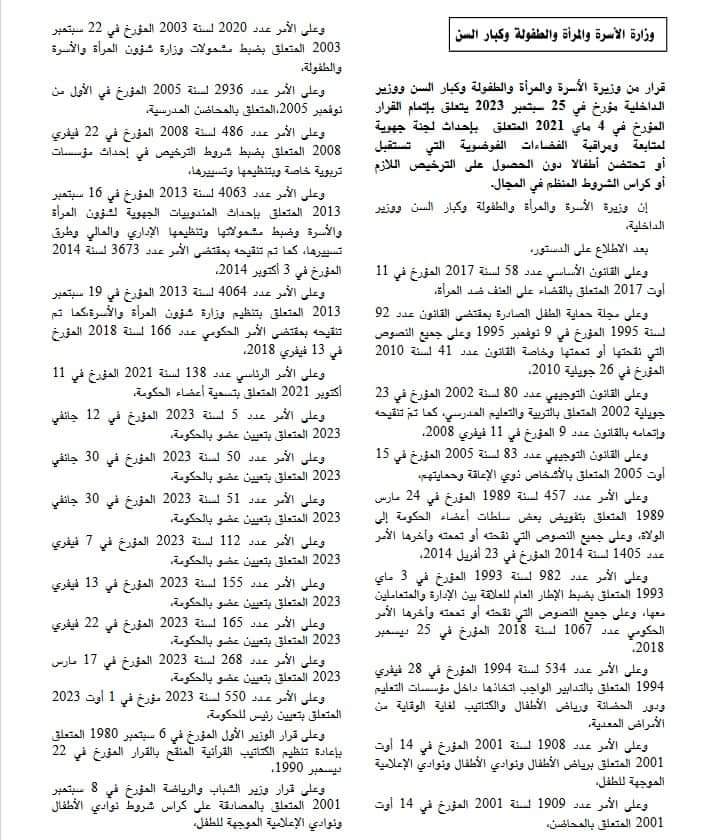 وزارة الأسرة والمرأة والطفولة وكبار السن
قرار من وزيرة الأسرة والمرأة والطفولة وكبار السن ووزير
الداخلية مؤرخ في 25 سبتمبر 2023 يتعلق بإتمام القرار
المؤرخ في 4 ماي 2021 المتعلق بإحداث لجنة جهوية
لمتابعة ومراقبة الفضاءات الفوضوية التي تستقبل
أو تحتضن أطفالا دون الحصول على الترخيص اللازم
أو كراس الشروط المنظم في المجال.
إن وزيرة الأسرة والمرأة والطفولة وكبار السن ووزير
الداخلية،
بعد الاطلاع على الدستور،
وعلى القانون الأساسي عدد 58 لسنة 2017 المؤرخ في 11
أوت 2017 المتعلق بالقضاء على العنف ضد المرأة،
وعلى مجلة حماية الطفل الصادرة بمقتضى القانون عدد 92
لسنة 1995 المؤرخ في 9 نوفمبر 1995 وعلى جميع النصوص
التي نقحتها أو تممتها وخاصة القانون عدد 41 لسنة 2010
المؤرخ في 26 جويلية 2010،
وعلى القانون التوجيهي عدد 80 لسنة 2002 المؤرخ في 23
جويلية 2002 المتعلق بالتربية والتعليم المدرسي، كما تمّ تنقيحه
وإتمامه بالقانون عدد 9 المؤرخ في 11 فيفري 2008،
وعلى القانون التوجيهي عدد 83 لسنة 2005 المؤرخ في 15
أوت 2005 المتعلق بالأشخاص ذوي الإعاقة وحمايتهم،
وعلى الأمر عدد 457 لسنة 1989 المؤرخ في 24 مارس
1989 المتعلق بتفويض بعض سلطات أعضاء الحكومة إلى
الولاة، وعلى جميع النصوص التي نقحته أو تممته وآخرها الأمر
عدد 1405 لسنة 2014 المؤرخ في 23 أفريل 2014،
وعلى الأمر عدد 982 لسنة 1993 المؤرخ في 3 ماي
1993 المتعلق بضبط الإطار العام للعلاقة بين الإدارة والمتعاملين
معها، وعلى جميع النصوص التي نقحته أو تممته وآخرها الأمر
الحكومي عدد 1067 لسنة 2018 المؤرخ في 25 ديسمبر
2018،
وعلى الأمر عدد 534 لسنة 1994 المؤرخ في 28 فيفري
1994 المتعلق بالتدابير الواجب اتخاذها داخل مؤسسات التعليم
ودور الحضانة ورياض الأطفال والكتاتيب لغاية الوقاية من
الأمراض المعدية،
وعلى الأمر عدد 1908 لسنة 2001 المؤرخ في 14 أوت
2001 المتعلق برياض الأطفال ونوادي الأطفال ونوادي الإعلامية
الموجهة للطفل،
وعلى الأمر عدد 1909 لسنة 2001 المؤرخ في 14 أوت
2001 المتعلق بالمحاضن،
وعلى الأمر عدد 2020 لسنة 2003 المؤرخ في 22 سبتمبر
2003 المتعلق بضبط مشمولات وزارة شؤون المرأة والأسرة
والطفولة،
وعلى الأمر عدد 2936 لسنة 2005 المؤرخ في الأول من
نوفمبر 2005،المتعلق بالمحاضن المدرسية،
وعلى الأمر عدد 486 لسنة 2008 المؤرخ في 22 فيفري
2008 المتعلق بضبط شروط الترخيص في إحداث مؤسسات
تربوية خاصة وبتنظيمها وتسييرها،
وعلى الأمر عدد 4063 لسنة 2013 المؤرخ في 16 سبتمبر
2013 المتعلق بإحداث المندوبيات الجهوية لشؤون المرأة
والأسرة وضبط مشمولاتها وتنظيمها الإداري والمالي وطرق
تسييرها، كما تم تنقيحه بمقتضى الأمر عدد 3673 لسنة 2014
المؤرخ في 3 أكتوبر 2014،
وعلى الأمر عدد 4064 لسنة 2013 المؤرخ في 19 سبتمبر
2013 المتعلق بتنظيم وزارة شؤون المرأة والأسرة،كما تم
تنقيحه بمقتضى الأمر الحكومي عدد 166 لسنة 2018 المؤرخ
في 13 فيفري 2018،
وعلى الأمر الرئاسي عدد 138 لسنة 2021 المؤرخ في 11
أكتوبر 2021 المتعلق بتسمية أعضاء الحكومة،
وعلى الأمر عدد 5 لسنة 2023 المؤرخ في 12 جانفي
2023 المتعلق بتعيين عضو بالحكومة،
وعلى الأمر عدد 50 لسنة 2023 المؤرخ في 30 جانفي
2023 المتعلق بتعيين عضو بالحكومة،
وعلى الأمر عدد 51 لسنة 2023 المؤرخ في 30 جانفي
2023 المتعلق بتعيين عضو بالحكومة،
وعلى الأمر عدد 112 لسنة 2023 المؤرخ في 7 فيفري
2023 المتعلق بتعيين عضو بالحكومة،
وعلى الأمر عدد 155 لسنة 2023 المؤرخ في 13 فيفري
2023 المتعلق بتعيين عضو بالحكومة،
وعلى الأمر عدد 165 لسنة 2023 المؤرخ في 22 فيفري
2023 المتعلق بتعيين عضو بالحكومة،
وعلى الأمر عدد 268 لسنة 2023 المؤرخ في 17 مارس
2023 المتعلق بتعيين عضو بالحكومة،
وعلى الأمر عدد 550 لسنة 2023 مؤرخ في 1 أوت 2023
المتعلق بتعيين رئيس للحكومة،
وعلى قرار الوزير الأول المؤرخ في 6 سبتمبر 1980 المتعلق
بإعادة تنظيم الكتاتيب القرآنية المنقح بالقرار المؤرخ في 22
ديسمبر 1990،
وعلى قرار وزير الشباب والرياضة المؤرخ في 8 سبتمبر
2001 المتعلق بالمصادقة على كراس شروط نوادي الأطفال
ونوادي الإعلامية الموجهة للطفل،